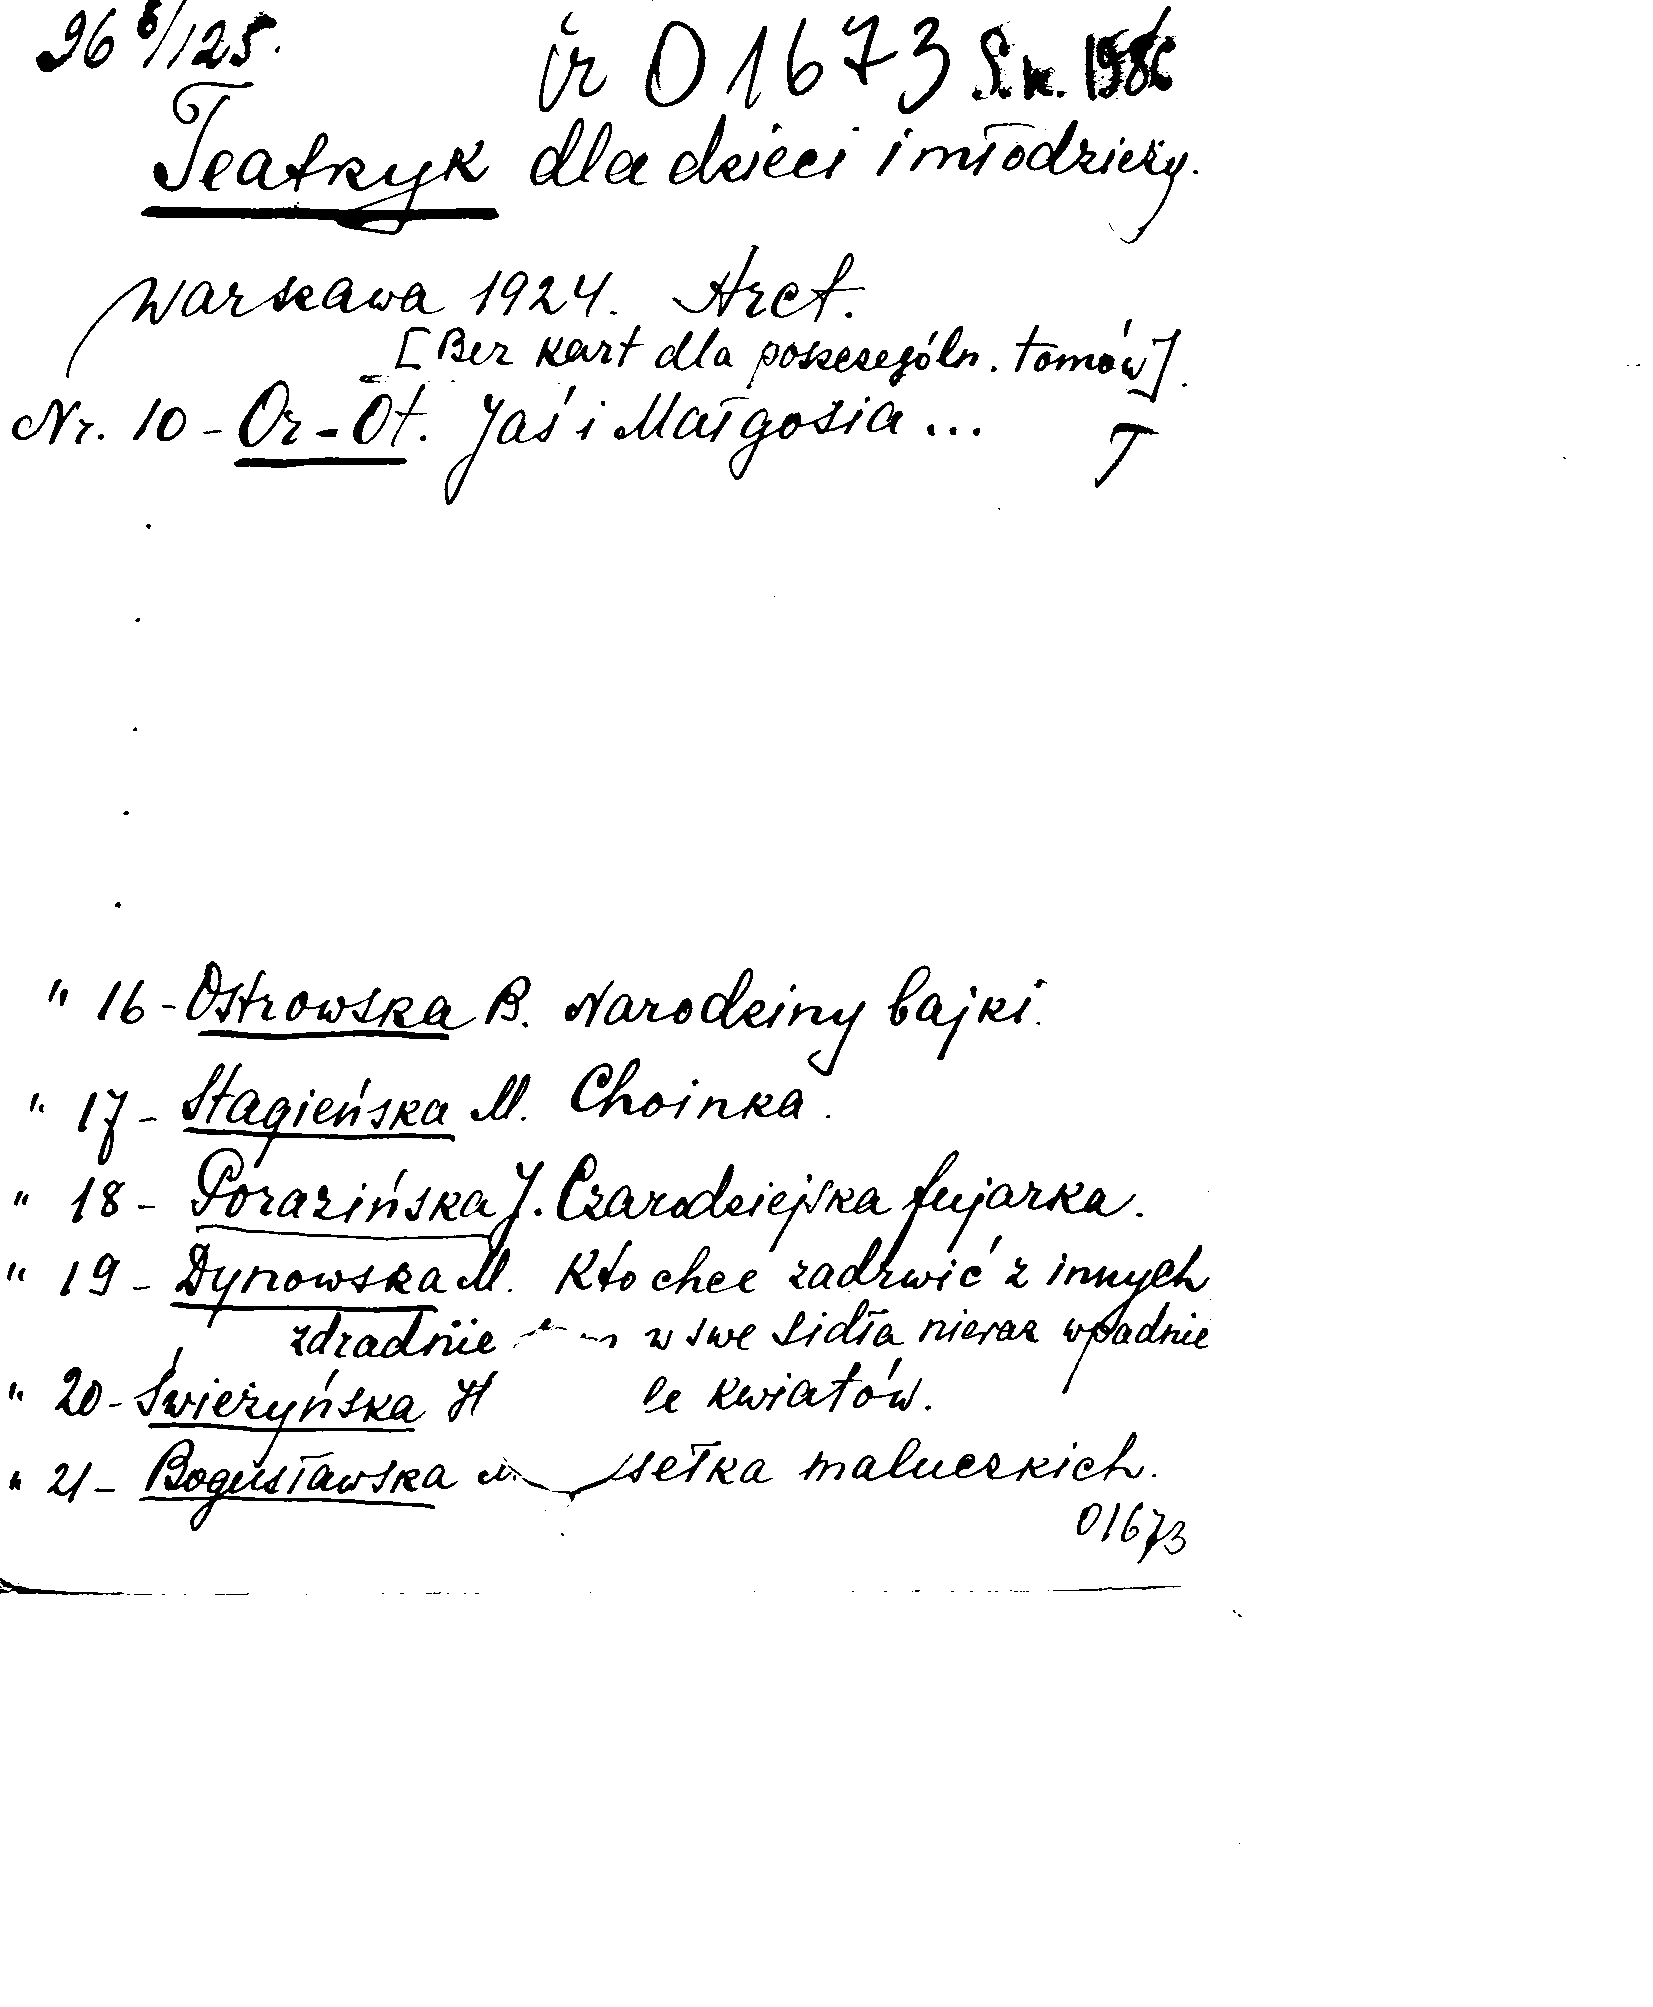 ir 01673 S.k.
Teatrzyk dla dzieci i młodzieży.
Warszawa 1924. Arct.
[Bez kart dla poszczególn. tomów].
Nr. 10 - Or-Ot. Jaś i Małgosia ...
T
" 16 - Ostrowska B. Narodziny bajki.
" 17 - Stagieńska M. Choinka.
" 18 - Porazińska J. Czarodziejska fujarka.
" 19 - Dynowska M. Kto chce zadrwić z innych
zdradnie w swe sidła nieraz wpadnie
" 20 - Świeżyńska H le kwiatów.
" 21 - Bogusławska M. sełka maluczkich.
01673